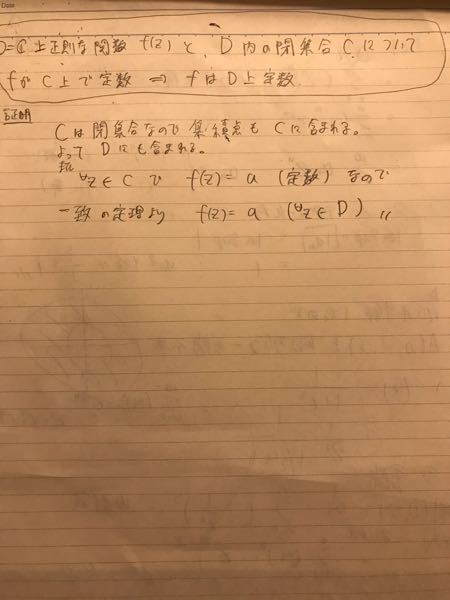 Date
D=ℂ上正則な関数 f(z) と、D内の閉集合Cについて
fがC上で定数 ⇒ fはD上定数
証明
Cは閉集合なので集積点もCに含まれる。
よってDにも含まれる。
また
∀z∈Cで f(z)=a (定数) なので
一致の定理より f(z)=a (∀z∈D) 〃